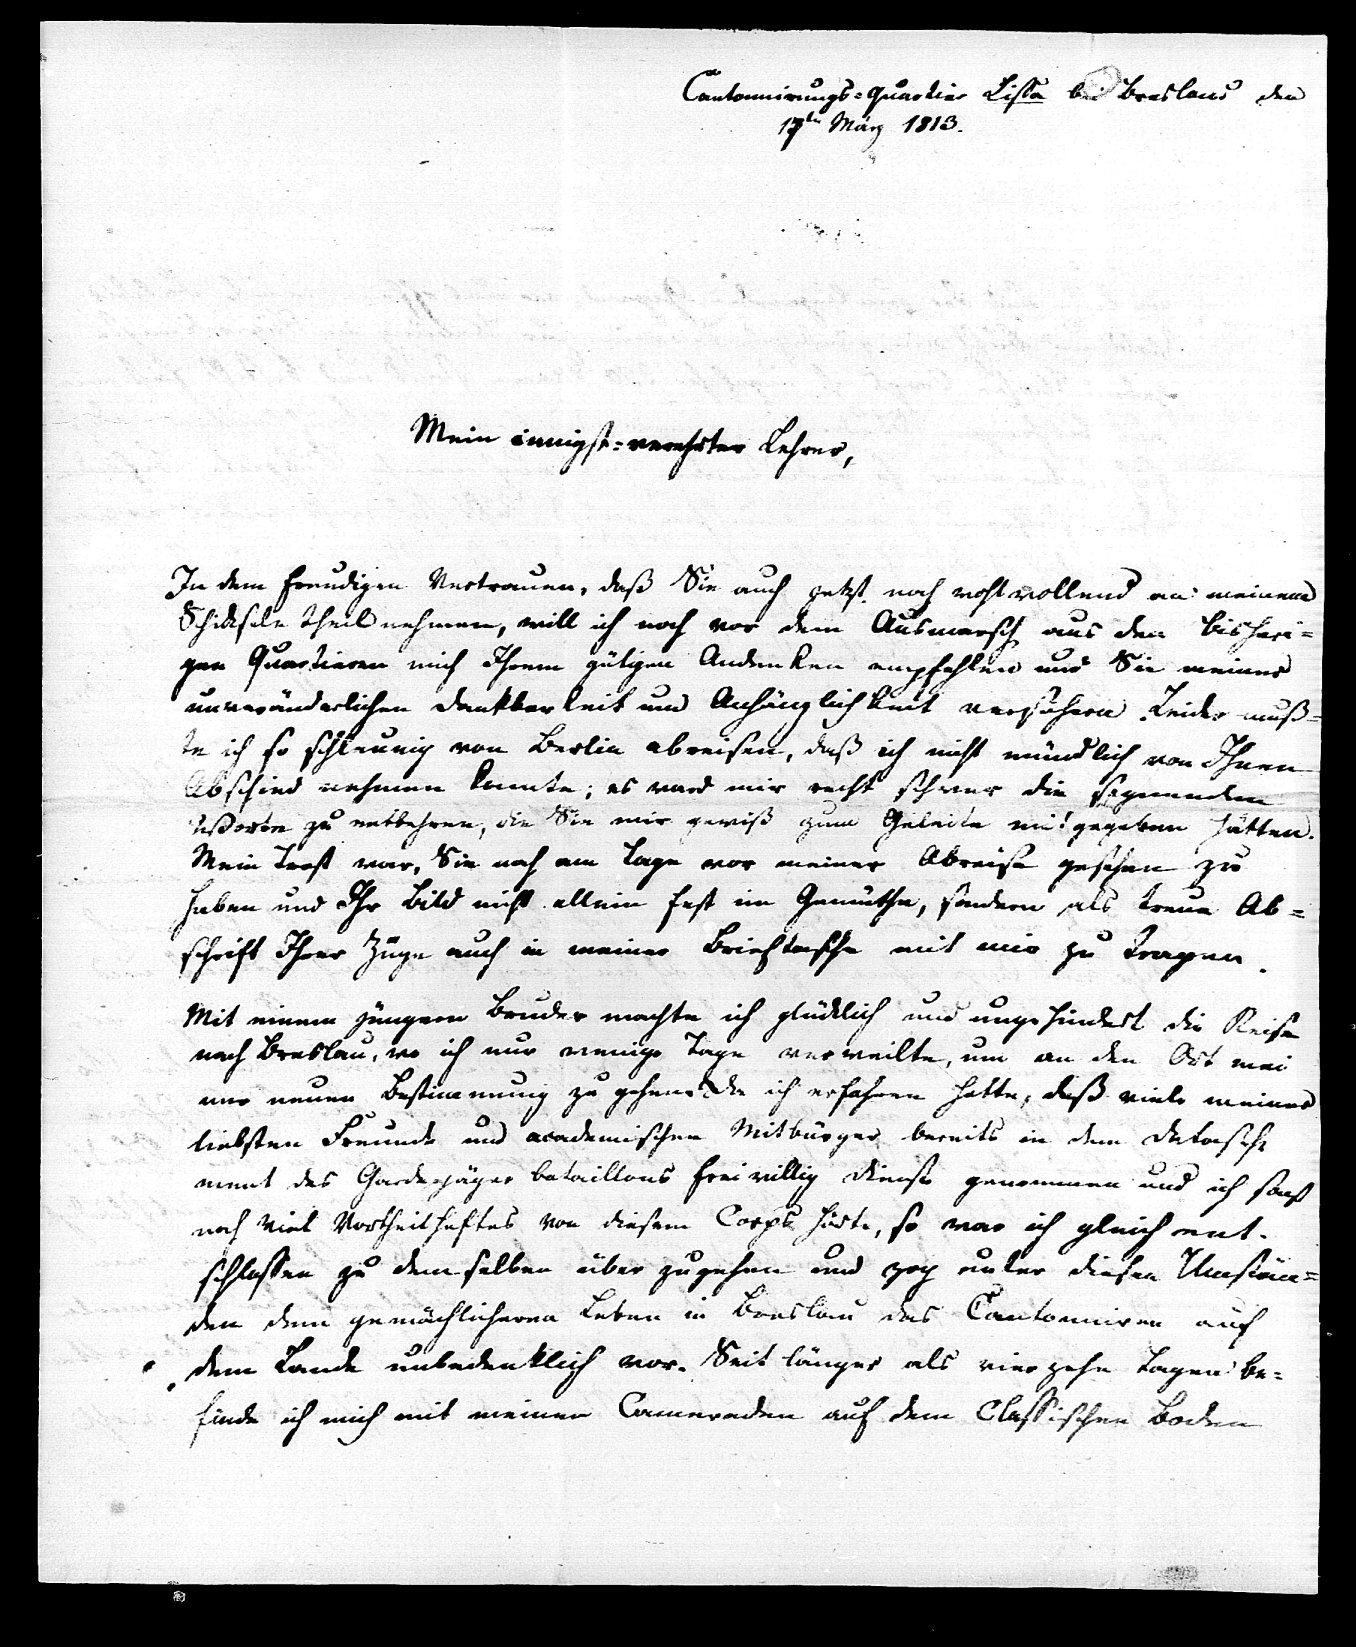 Cantonnirungs-Quartier Lissa bei Breslau den
17ten März 1813.
Mein innigst-verehrter Lehrer,
In dem freudigen Vertrauen, daß Sie auch jetzt noch wohlwollend an meinem
Schicksale theilnehmen, will ich noch vor dem Ausmarsch aus den bisheri-
gen Quartieren mich Ihrem gütigen Andenken empfehlen und Sie meiner
unveränderlichen Dankbarkeit und Anhänglichkeit versichern. Leider muß-
te ich so schleunig von Berlin abreisen, daß ich nicht mündlich von Ihnen
Abschied nehmen konnte; es ward mir recht schwer die segnenden
Worte zu entbehren, die Sie mir gewiß zum Geleite mitgegeben hätten.
Mein Trost war, Sie noch am Tage vor meiner Abreise gesehen zu
haben und Ihr Bild nicht allein fest im Gemüthe, sondern als treue Ab-
schrift Ihrer Züge auch in meiner Brieftasche mit mir zu tragen.
Mit einem jüngern Bruder machte ich glücklich und ungehindert die Reise
nach Breslau, wo ich nur wenige Tage verweilte, um an den Ort mei
ner neuen Bestimmung zu gehen. Da ich erfahren hatte, daß viele meiner
liebsten Freunde und academischen Mitbürger bereits in dem Detasche
ment des Gardejäger bataillons freiwillig Dienste genommen und ich sonst
noch viel Vortheilhaftes von diesem Corps hörte, so war ich gleich ent-
schlossen zu demselben überzugehen und zog unter diesen Umstän-
den dem gemächlicheren Leben in Breslau das Cantonniren auf
dem Lande unbedenklich vor. Seit länger als vierzehn Tagen be-
finde ich mich mit meinen Cameraden auf dem Classischen Boden